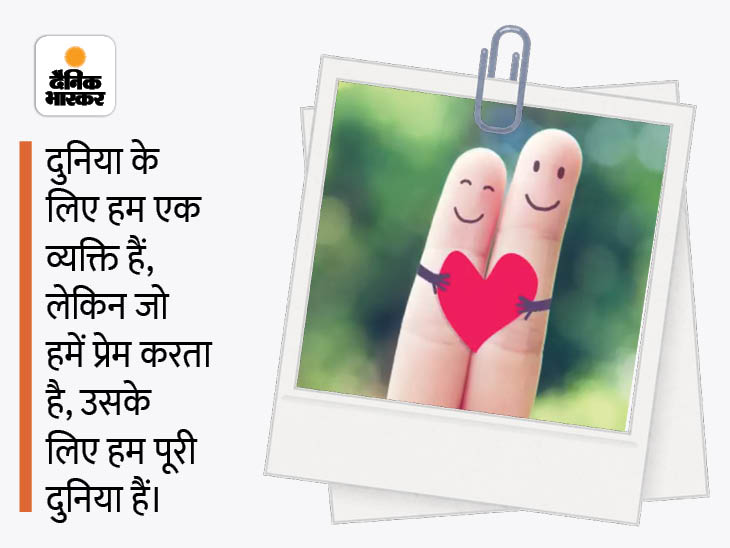 दैनिक
भास्कर
दुनिया के
लिए हम एक
व्यक्ति हैं,
लेकिन जो
हमें प्रेम करता
है, उसके
लिए हम पूरी
दुनिया हैं।